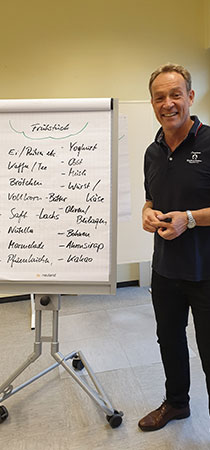 Frühstück
Ei / Rühren etc - Yoghurt
Kaffee / Tee - Obst
Brötchen - Müsli
Vollkorn - Butter - Wurst / Käse
Saft - Lachs - Oliven /
Nutella - Bohnen
Marmelade - Ahornsirup
- Kakao
neuland